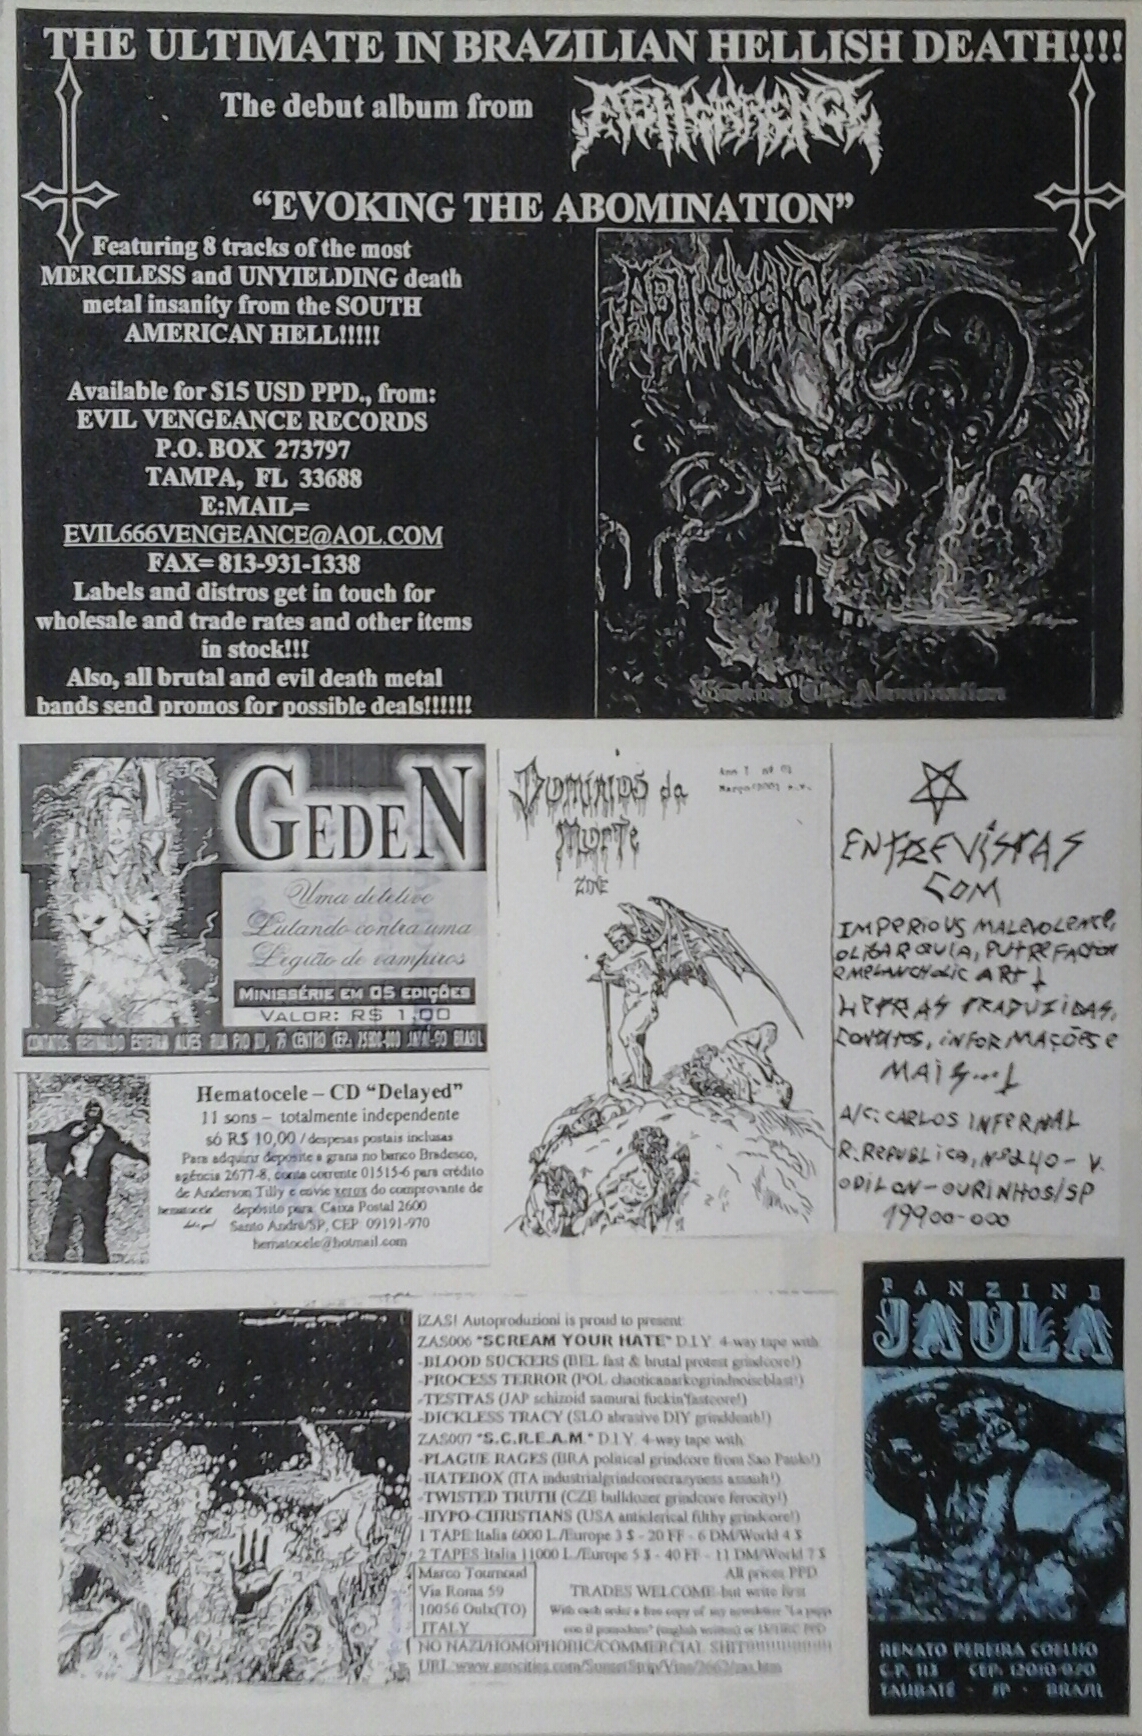 THE ULTIMATE IN BRAZILIAN HELLISH DEATH!!!!
The debut album from ABHORRENCE
"EVOKING THE ABOMINATION"
Featuring 8 tracks of the most
MERCILESS and UNYIELDING death
metal insanity from the SOUTH
AMERICAN HELL!!!!!
Available for $15 USD PPD., from:
EVIL VENGEANCE RECORDS
P.O. BOX 273797
TAMPA, FL 33688
E:MAIL=
EVIL666VENGEANCE@AOL.COM
FAX= 813-931-1338
Labels and distros get in touch for
wholesale and trade rates and other items
in stock!!!
Also, all brutal and evil death metal
bands send promos for possible deals!!!!!!
ABHORRENCE
Evoking The Abomination
GEDEN
Uma detetive
Lutando contra uma
Legião de vampiros
MINISSÉRIE EM 05 EDIÇÕES
VALOR: R$ 1,00
CONTATOS: REGINALDO ESTEVAM ALVES RUA PIO XII, 79 CENTRO CEP.: 75800-000 JATAÍ-GO BRASIL
Hematocele – CD "Delayed"
11 sons – totalmente independente
só R$ 10,00 / despesas postais inclusas
Para adquirir deposite a grana no banco Bradesco,
agência 2677-8, conta corrente 01515-6 para crédito
de Anderson Tilly e envie xerox do comprovante de
depósito para: Caixa Postal 2600
Santo André/SP, CEP: 09191-970
hematocele@hotmail.com
hematocele
DOMÍNIOS da
MORTE
ZINE
Ano I nº 01
Março/2001
ENTREVISTAS
COM
IMPERIOUS MALEVOLENCE,
OLIGARQUIA, PUTREFACTION
e MELANCHOLIC ART
LETRAS TRADUZIDAS,
CONTATOS, INFORMAÇÕES e
MAIS...
A/C: CARLOS INFERNAL
R. REPUBLICA, Nº 240 - V.
ODILON - OURINHOS/SP
19900-000
¡ZAS! Autoproduzioni is proud to present:
ZAS006 "SCREAM YOUR HATE" D.I.Y. 4-way tape with
-BLOOD SUCKERS (BEL fast & brutal protest grindcore!)
-PROCESS TERROR (POL chaoticanarkogrindnoiseblast!)
-TESTPAS (JAP schizoid samurai fuckin'fastcore!)
-DICKLESS TRACY (SLO abrasive DIY grinddeath!)
ZAS007 "S.C.R.E.A.M." D.I.Y. 4-way tape with:
-PLAGUE RAGES (BRA political grindcore from Sao Paulo!)
-HATEBOX (ITA industrialgrindcorecrazyness assault!)
-TWISTED TRUTH (CZE bulldozer grindcore ferocity!)
-HYPO-CHRISTIANS (USA anticlerical filthy grindcore!)
1 TAPE:Italia 6000 L./Europe 3 $ - 20 FF - 6 DM/World 4 $
2 TAPES:Italia 11000 L./Europe 5 $ - 40 FF - 11 DM/World 7 $
All prices PPD
Marco Tournoud
Via Roma 59
10056 Oulx(TO)
ITALY
TRADES WELCOME but write first
With each order a free copy of my newsletter "La pappa
con il pomodoro" (english written) or
NO NAZI/HOMOPHOBIC/COMMERCIAL SHIT!!!!!!!!!!!!!!
URL:www.geocities.com/SunsetStrip/
FANZINE
JAULA
RENATO PEREIRA COELHO
C.P. 113 CEP: 12010-970
TAUBATÉ - SP - BRASIL